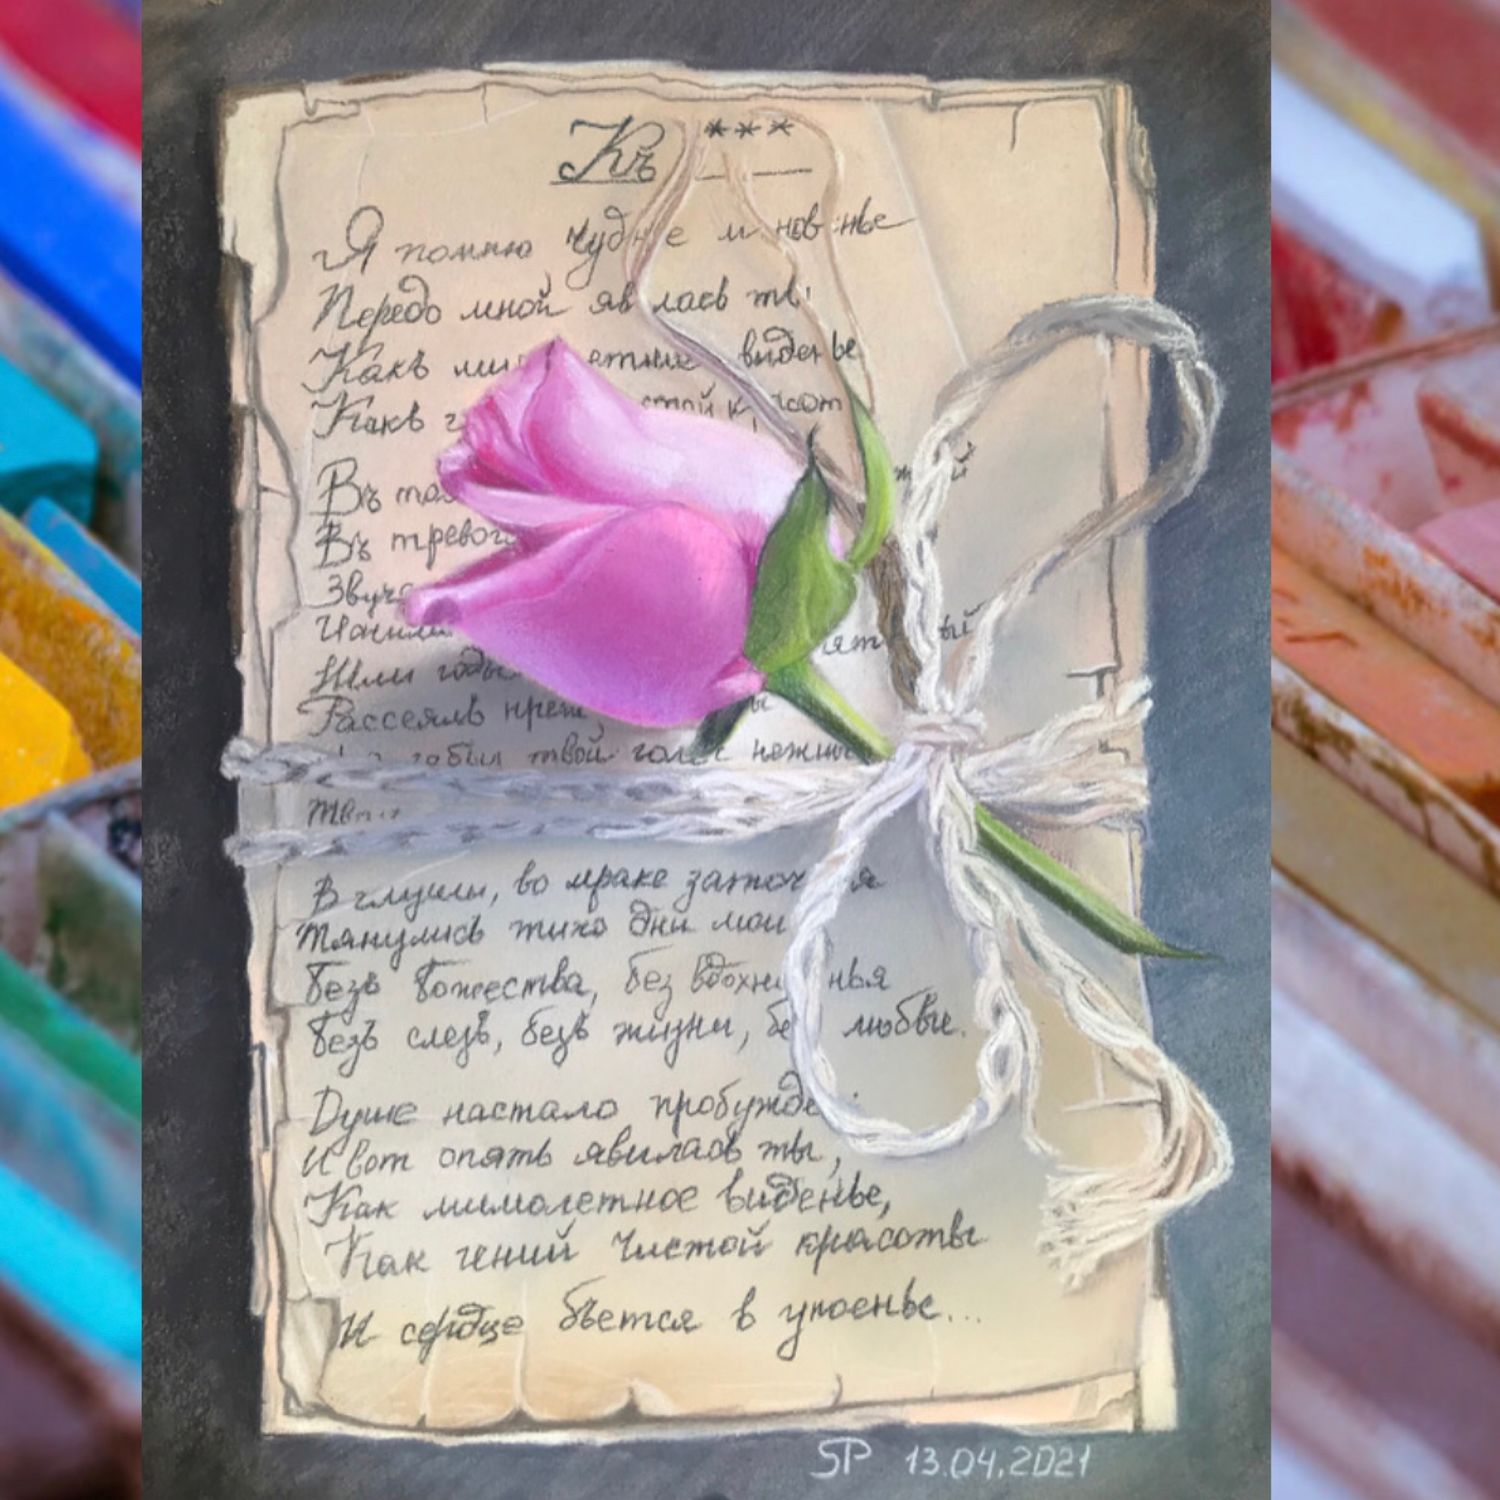 Къ ***
Я помню чудн е м нов нье
Передо мной яв лась ты
Какъ ми етное виденье
Какъ г стой к асот
Въ том
Въ тревог
Звуча
И сни ят ый
Шли годы
Рассеялъ преж ы
забыл твой голос нежны
Тво
В глуши, во мраке заточ я
Тянулись тихо дни мои
Безъ божества, без вдохн нья
Безъ слезъ, безъ жизни, бе любви.
Душе настало пробужде
И вот опять явилась ты,
Как мимолетное виденье,
Как гений чистой красоты
И сердце бьется в упоенье...
SP 13.04.2021